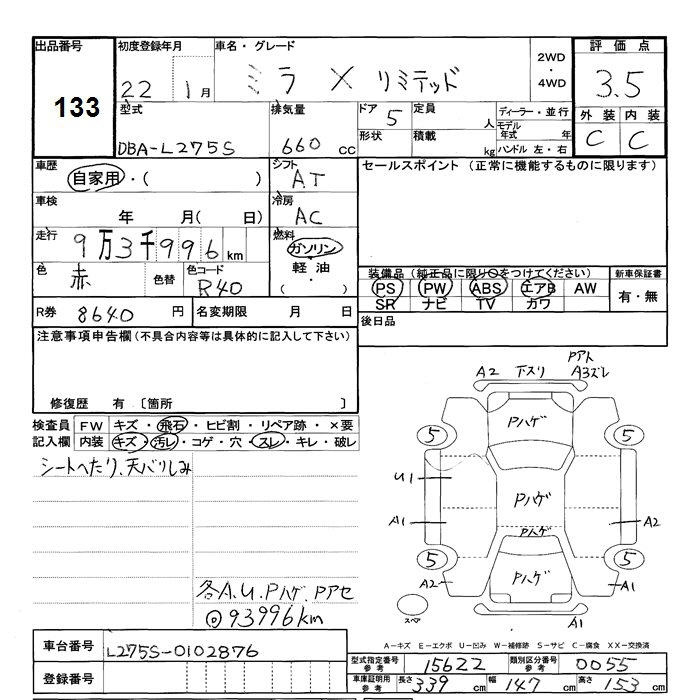 出品番号
133
初度登録年月
22 1月
車名・グレード
ミラ X リミテッド
2WD
4WD
評価点
3.5
型式
DBA-L275S
排気量
660 cc
ドア 5
形状
定員 人
積載 kg
ディーラー・並行
モデル年式 年
ハンドル 左・右
外装 内装
C C
車歴
自家用・( )
シフト
AT
セールスポイント (正常に機能するものに限ります)
車検
年 月( 日)
冷房
AC
走行
9万3千996km
燃料
ガソリン
軽油
( )
色
赤
色替
色コード
R40
装備品 (純正品に限り○をつけてください)
PS PW ABS エアB AW
SR ナビ TV カワ
新車保証書
有・無
R券 8640 円
名変期限 月 日
後日品
注意事項申告欄(不具合内容等は具体的に記入して下さい)
修復歴 有 〔箇所 〕
検査員記入欄
FW キズ・飛石・ヒビ割・リペア跡・×要
内装 キズ・汚レ・コゲ・穴・スレ・キレ・破レ
シートへたり、天バリしみ
各A.U.Pハゲ.Pアセ
◎93996km
A2 下スリ PアトA3ズレ
Pハゲ
5 5
U1
Pハゲ
A1 A2
Pハゲ
5 5
Pハゲ
A2 A1
スペア
A1
A-キズ E-エクボ U-凹み W-補修跡 S-サビ C-腐食 XX-交換済
車台番号
L275S-0102876
登録番号
型式指定番号参考 15622
類別区分番号参考 0055
車庫証明用参考 長さ 339 cm 幅 147 cm 高さ 153 cm